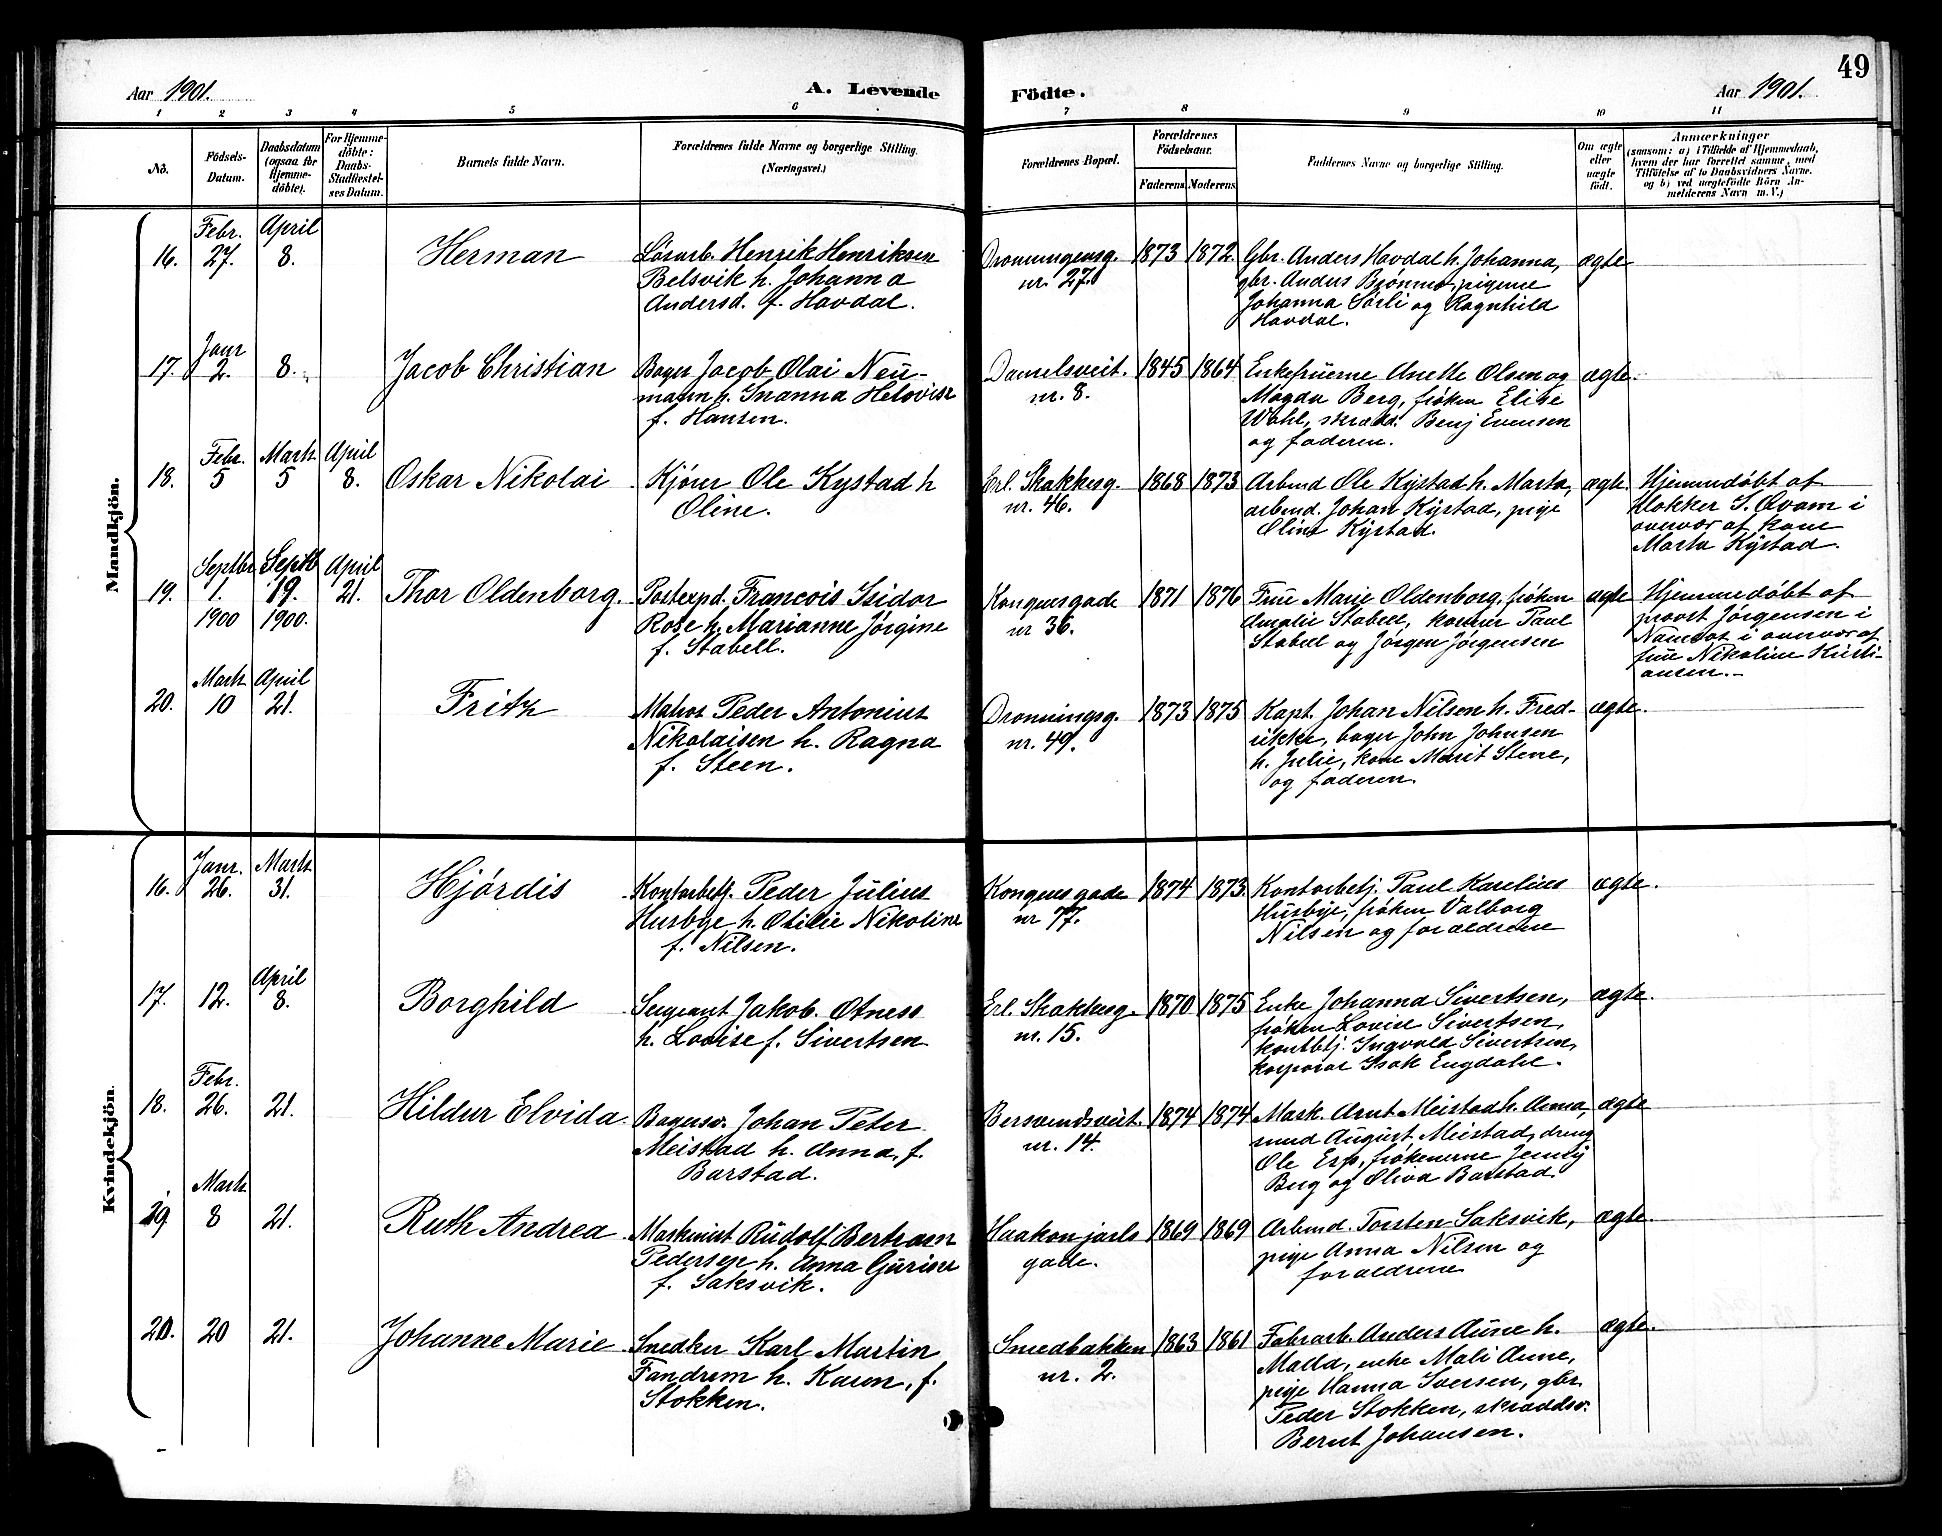 Aar 1901.
A. Levende
Födte.
Aar 1901.
49
1 2 3 4 5 6 7 8 9 10 11
No.
Födsels-
Datum.
Daabsdatum
(ogsaa for
Hjemme-
döbte).
For Hjemme-
döbte:
Daabs-
Stadfæstel-
ses Datum.
Barnets fulde Navn.
Forældrenes fulde Navne og borgerlige Stilling.
(Næringsvei.)
Forældrenes Bopæl.
Forældrenes
Födselsaar.
Faderens. Moderens.
Faddernes Navne og borgerlige Stilling.
Om ægte
eller
uægte
födt.
Anmærkninger
(saasom: a) i Tilfælde af Hjemmedaab,
hvem der har forrettet samme, med
Tilföielse af to Daabsvidners Navne.
og b) ved uægtefödte Börn An-
melderens Navn m. V.)
Mandkjön.
16.
Febr.
27.
April
8.
Herman
Løsarb. Henrik Henriksen
Belsvik h. Johanna
Andersd. f. Havdal.
Dronningensg.
nr. 27.
1873
1872.
Gbr. Anders Havdal h. Johanna,
gbr. Anders Bjønnes, pigerne
Johanna Sørli og Ragnhild
Havdal.
ægte
17.
Janr
2.
8.
Jacob Christian
Bager Jacob Olai Neu-
mann h. Susanna Helovise
f. Hansen.
Danielsveit.
nr. 8.
1845
1864
Enkefruerne Anette Olsen og
Magda Berg, frøken Elise
Wahl, skrædd. Benj Evensen
og faderen.
ægte.
18.
Febr.
5
Marts
5
April
8.
Oskar Nikolai
Kjører Ole Kystad h
Oline.
Erl. Skakkesg.
nr. 46.
1868
1873
Arbmd Ole Kystad h. Marta,
arbmd. Johan Kystad, pige
Oline Kystad.
ægte.
Hjemmedøbt af
klokker S. Kvam i
overvær af kone
Marta Kystad.
19.
Septbr
1.
1900
Septb
19.
1900.
April
21.
Thor Oldenborg.
Postexpd. Francois Isidor
Rose h. Marianne Jørgine
f. Stabell.
Kongensgade
nr 36.
1871
1876
Frue Marie Oldenborg, frøken
Amalie Stabell, Paul
Stabell og Jørgen Jørgensen
ægte
Hjemmedøbt af
provst Jørgensen i
Namsos i overvær af
frue Nikoline Kristi-
ansen.-
20.
Marts
10
April
21.
Fritz
Matros Peder Antonius
Nikolaisen h. Ragna
f. Steen.
Dronningsg.
nr. 49.
1873
1875
Kapt. Johan Nilsen h. Fred-
rikke, bager John Johnsen
h. Julie, kone Marit Stene,
og faderen.
ægte.
Kvindekjön.
16.
Janr.
26.
Marts
31.
Hjørdis
Kontorbetj. Peder Julius
Husbye h. Otilie Nikoline
f. Nilsen.
Kongensgade
nr 77.
1874
1873.
Kontorbetj. Paul Karelius
Husbye, frøken Valborg
Nilsen og forældrene
ægte.
17.
12.
April
8.
Borghild
Sergeant Jakob Otness
h. Lovise f. Sivertsen
Erl. Skakkesg.
nr. 15.
1870
1875
Enke Johanna Sivertsen,
frøken Lovise Sivertsen,
kontbetj. Ingvald Sivertsen,
korporal Isak Engdahl.
ægte.
18.
Febr.
26.
21.
Hildur Elvida
Bagersv. Johan Peter
Meistad h. Anna, f.
Barstad.
Bersvendsveit.
nr. 14.
1874
1874
Mask. Arnt Meistad h. Anna,
smed August Meistad, dreng
Ole Esp, frøknerne Jenny
Berg og Oliva Barstad.
ægte
19
Marts
8
21.
Ruth Andrea
Maskinist Rudolf Bertram
Pedersen h. Anna Gurine
f. Saksvik.
Haakon jarls
gade.
1869
1869
Arbmd. Torsten Saksvik,
pige Anna Nilsen og
forældrene
ægte.
20.
20
21.
Johanne Marie
Snedker Karl Martin
Fandrem h. Karen, f.
Stokken.
Smedbakken
nr. 2.
1863
1861
Fabrarb. Anders Aune h.
enke Mali Aune,
pige Hanna Iversen, gbr.
Peder Stokken, skræddsv.
Bernt Johansen.
ægte.